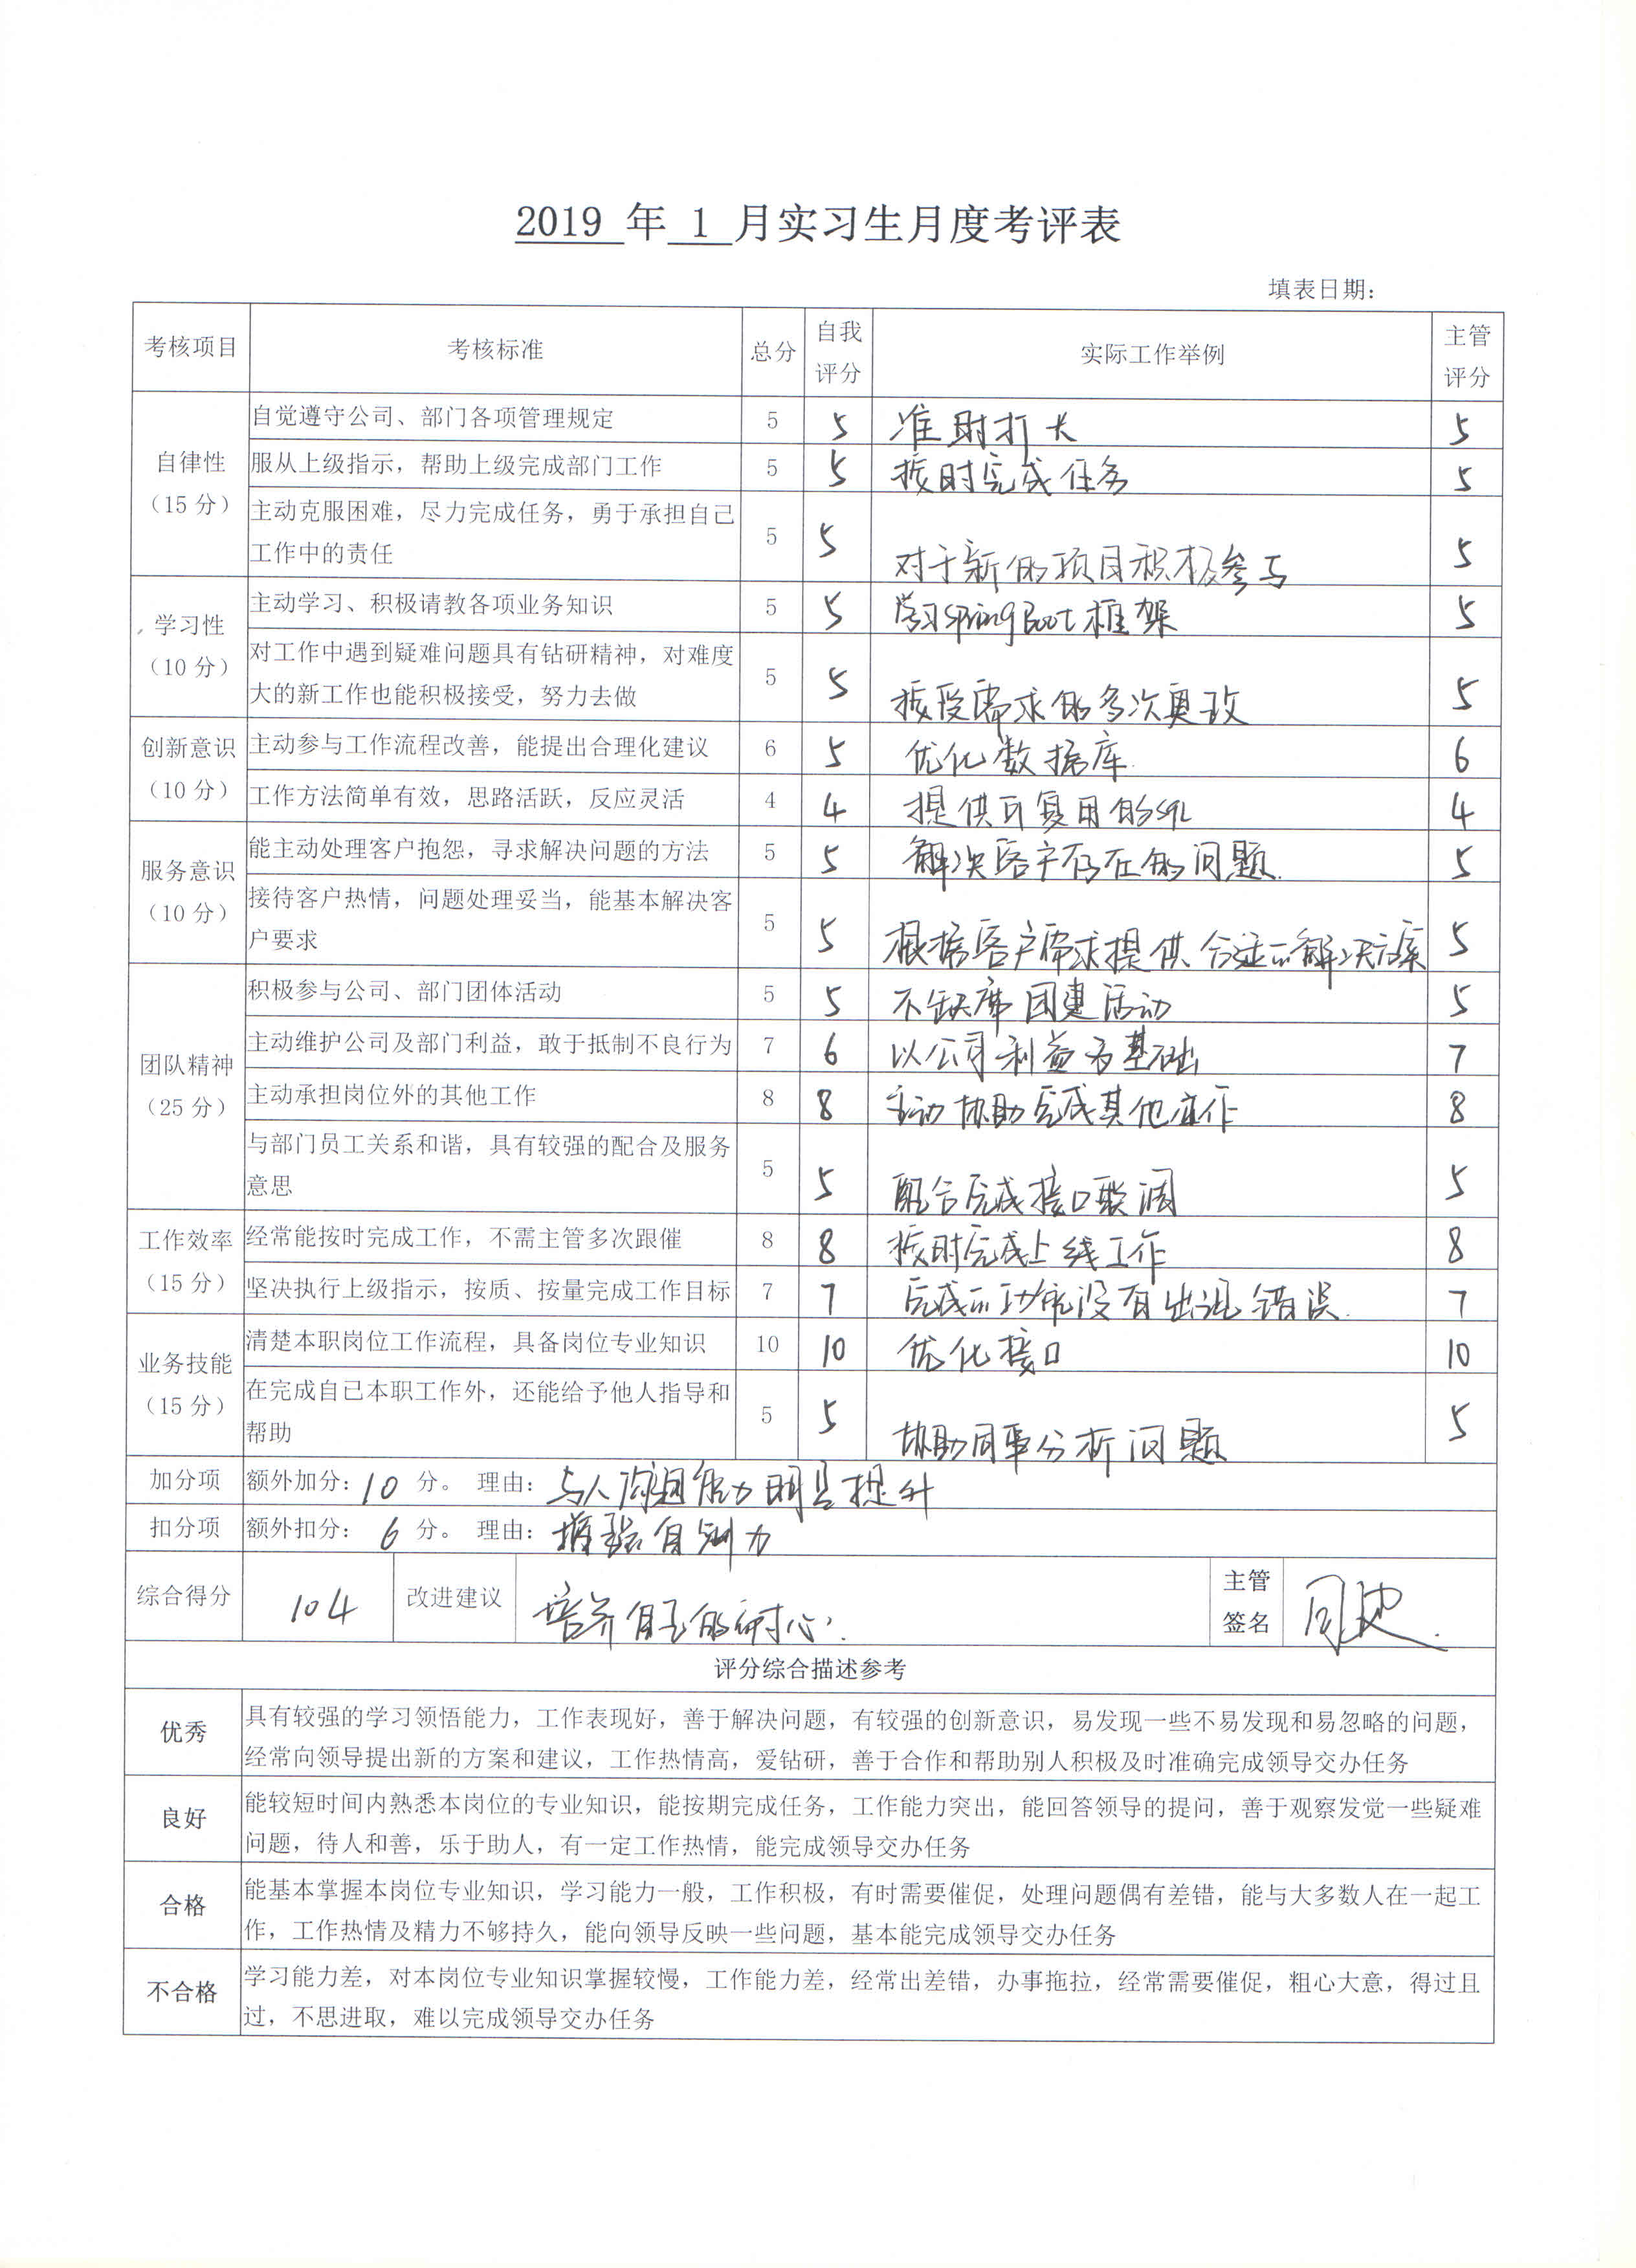 2019 年 1 月实习生月度考评表
填表日期：
考核项目 考核标准 总分 自我评分 实际工作举例 主管评分
自律性（15 分）
自觉遵守公司、部门各项管理规定 5 5 准时打卡 5
服从上级指示，帮助上级完成部门工作 5 5 按时完成任务 5
主动克服困难，尽力完成任务，勇于承担自己
工作中的责任 5 5 对于新的项目积极参与 5
学习性（10 分）
主动学习、积极请教各项业务知识 5 5 学习SpringBoot框架 5
对工作中遇到疑难问题具有钻研精神，对难度
大的新工作也能积极接受，努力去做 5 5 接受需求的多次更改 5
创新意识（10 分）
主动参与工作流程改善，能提出合理化建议 6 5 优化数据库. 6
工作方法简单有效，思路活跃，反应灵活 4 4 提供可复用的SQL 4
服务意识（10 分）
能主动处理客户抱怨，寻求解决问题的方法 5 5 解决客户存在的问题. 5
接待客户热情，问题处理妥当，能基本解决客
户要求 5 5 根据客户需求提供合适的解决方案 5
团队精神（25 分）
积极参与公司、部门团体活动 5 5 不缺席团建活动 5
主动维护公司及部门利益，敢于抵制不良行为 7 6 以公司利益为基础 7
主动承担岗位外的其他工作 8 8 主动协助完成其他工作 8
与部门员工关系和谐，具有较强的配合及服务
意思 5 5 配合完成接口联调 5
工作效率（15 分）
经常能按时完成工作，不需主管多次跟催 8 8 按时完成上线工作 8
坚决执行上级指示，按质、按量完成工作目标 7 7 完成的功能没有出现错误. 7
业务技能（15 分）
清楚本职岗位工作流程，具备岗位专业知识 10 10 优化接口 10
在完成自己本职工作外，还能给予他人指导和
帮助 5 5 协助同事分析问题 5
加分项 额外加分：10 分。 理由：与人沟通能力明显提升
扣分项 额外扣分： 6 分。 理由：增强自制力
综合得分 104 改进建议 培养自己的耐心. 主管签名
评分综合描述参考
优秀 具有较强的学习领悟能力，工作表现好，善于解决问题，有较强的创新意识，易发现一些不易发现和易忽略的问题，
经常向领导提出新的方案和建议，工作热情高，爱钻研，善于合作和帮助别人积极及时准确完成领导交办任务
良好 能较短时间内熟悉本岗位的专业知识，能按期完成任务，工作能力突出，能回答领导的提问，善于观察发觉一些疑难
问题，待人和善，乐于助人，有一定工作热情，能完成领导交办任务
合格 能基本掌握本岗位专业知识，学习能力一般，工作积极，有时需要催促，处理问题偶有差错，能与大多数人在一起工
作，工作热情及精力不够持久，能向领导反映一些问题，基本能完成领导交办任务
不合格 学习能力差，对本岗位专业知识掌握较慢，工作能力差，经常出差错，办事拖拉，经常需要催促，粗心大意，得过且
过，不思进取，难以完成领导交办任务